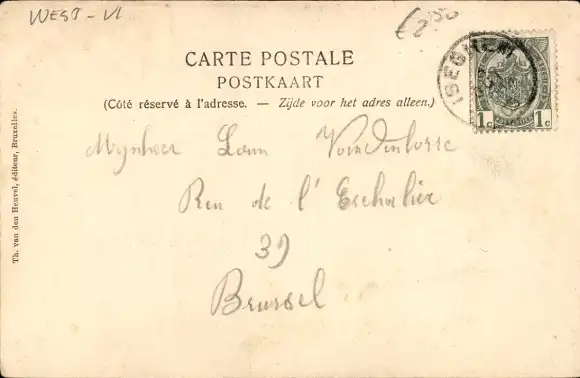 WEST-VL
€ 2.50
ISEGHEM
1c 1c
CARTE POSTALE
POSTKAART
(Côté réservé à l'adresse. — Zijde voor het adres alleen.)
Mynheer Leon Vandentorre
Rue de l'Eschalier
39
Brussel
Th. van den Heuvel, éditeur, Bruxelles.